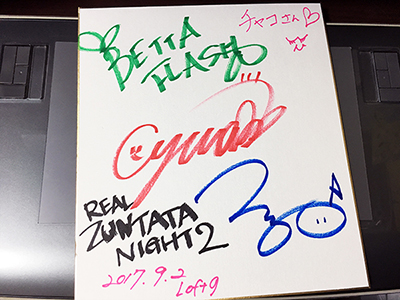 チャコさん
BETTA
FLASH
REAL
ZUNTATA
NIGHT2
2017.9.2
Loft9